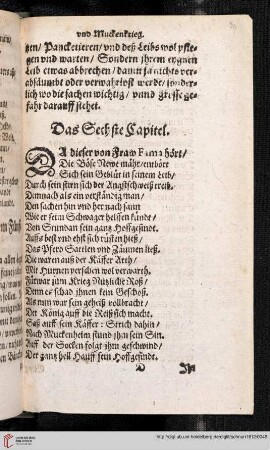 vnd Muckenkrieg.
gen/ Panckетieren/ vnd deß Leibs wol pfle-
gen vnd warten/ Sondern jhrem eygnen
Leib etwas abbrechen/ damit ja nichts ver-
säumbt oder verwahrlost werde/ sonder-
lich wo die sachen wichtig/ vnnd grosse ge-
fahr darauff stehet.
Das Sechste Capitel.
DA dieser von Fraw Fama hört/
Die Böse Newe mähr/ entbört
Sich sein Geblüt in seinem Leib/
Durch sein stirn sich der Angstschweiß treib.
Demnach als ein verständig man/
Den sachen hin vnd her nach sann
Wie er seim Schwager helffen kündt/
Von Stundan sein gantz Hoffgesindt.
Auffs best vnd ehst sich rüsten hieß/
Das Pferd Sattlen vnd Zäumen ließ.
Die waren auß der Käffer Arth/
Mit Hürnen versehen wol verwarth.
Fürwar zum Krieg Nützliche Roß/
Denn es schad jhnen kein Geschoß.
Als nun war sein geheiß vollbracht/
Der König auff die Reiß sich macht.
Saß auff sein Käffer: Strich dahin/
Nach Muckenheim stund jhm sein Sin.
Auff der Socken folgt jhm geschwind/
Der gantz hell Hauff sein Hoffgesindt.
D